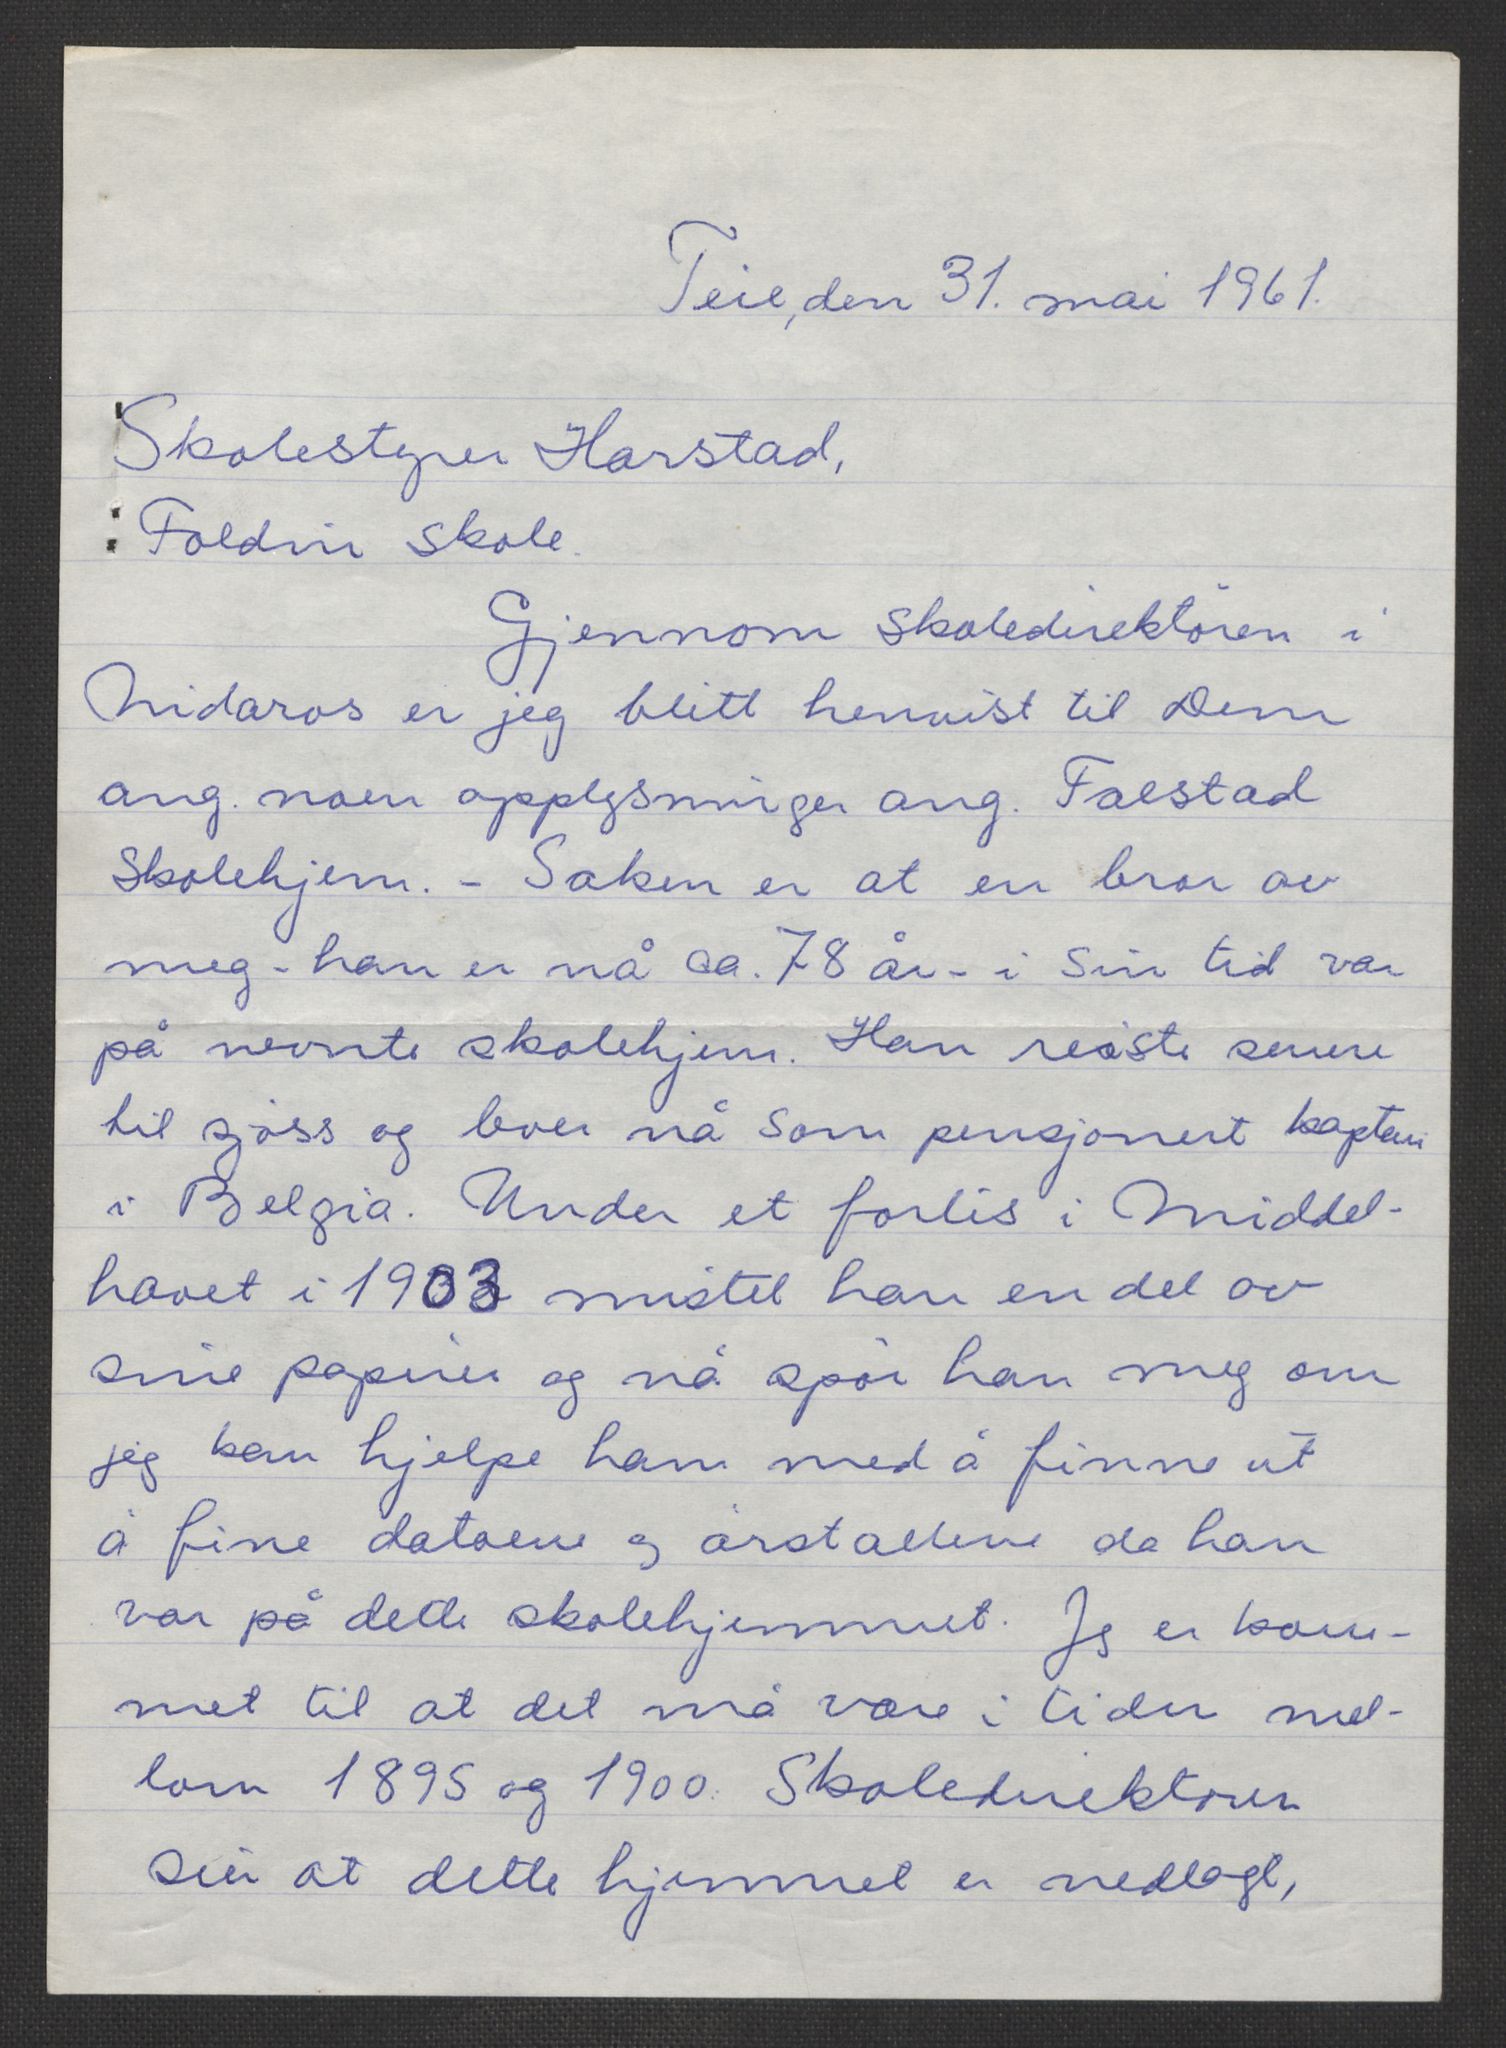 Teie, den 31. mai 1961.
Skolestyrer Harstad,
Foldvin skole.
Gjennom skoledirektören i
Nidaros er jeg blitt henvist til Dem
ang. noen opplysninger ang. Falstad
skolehjem. - Saken er at en bror av
meg - han er nå ca. 78 år - i sin tid var
på nevnte skolehjem. Han reiste senere
til sjøss og lever nå som pensjonert kaptein
i Belgia. Under et forlis i Middel-
havet i 1903 mistet han en del av
sine papirer og nå spör han meg om
jeg kan hjelpe ham med å finne ut
å fine datoene og årstallene da han
var på dette skolehjemmet. Jeg er kom-
met til at det må være i tiden mel-
lom 1895 og 1900. Skoledirektören
sier at dette hjemmet er nedlagt,